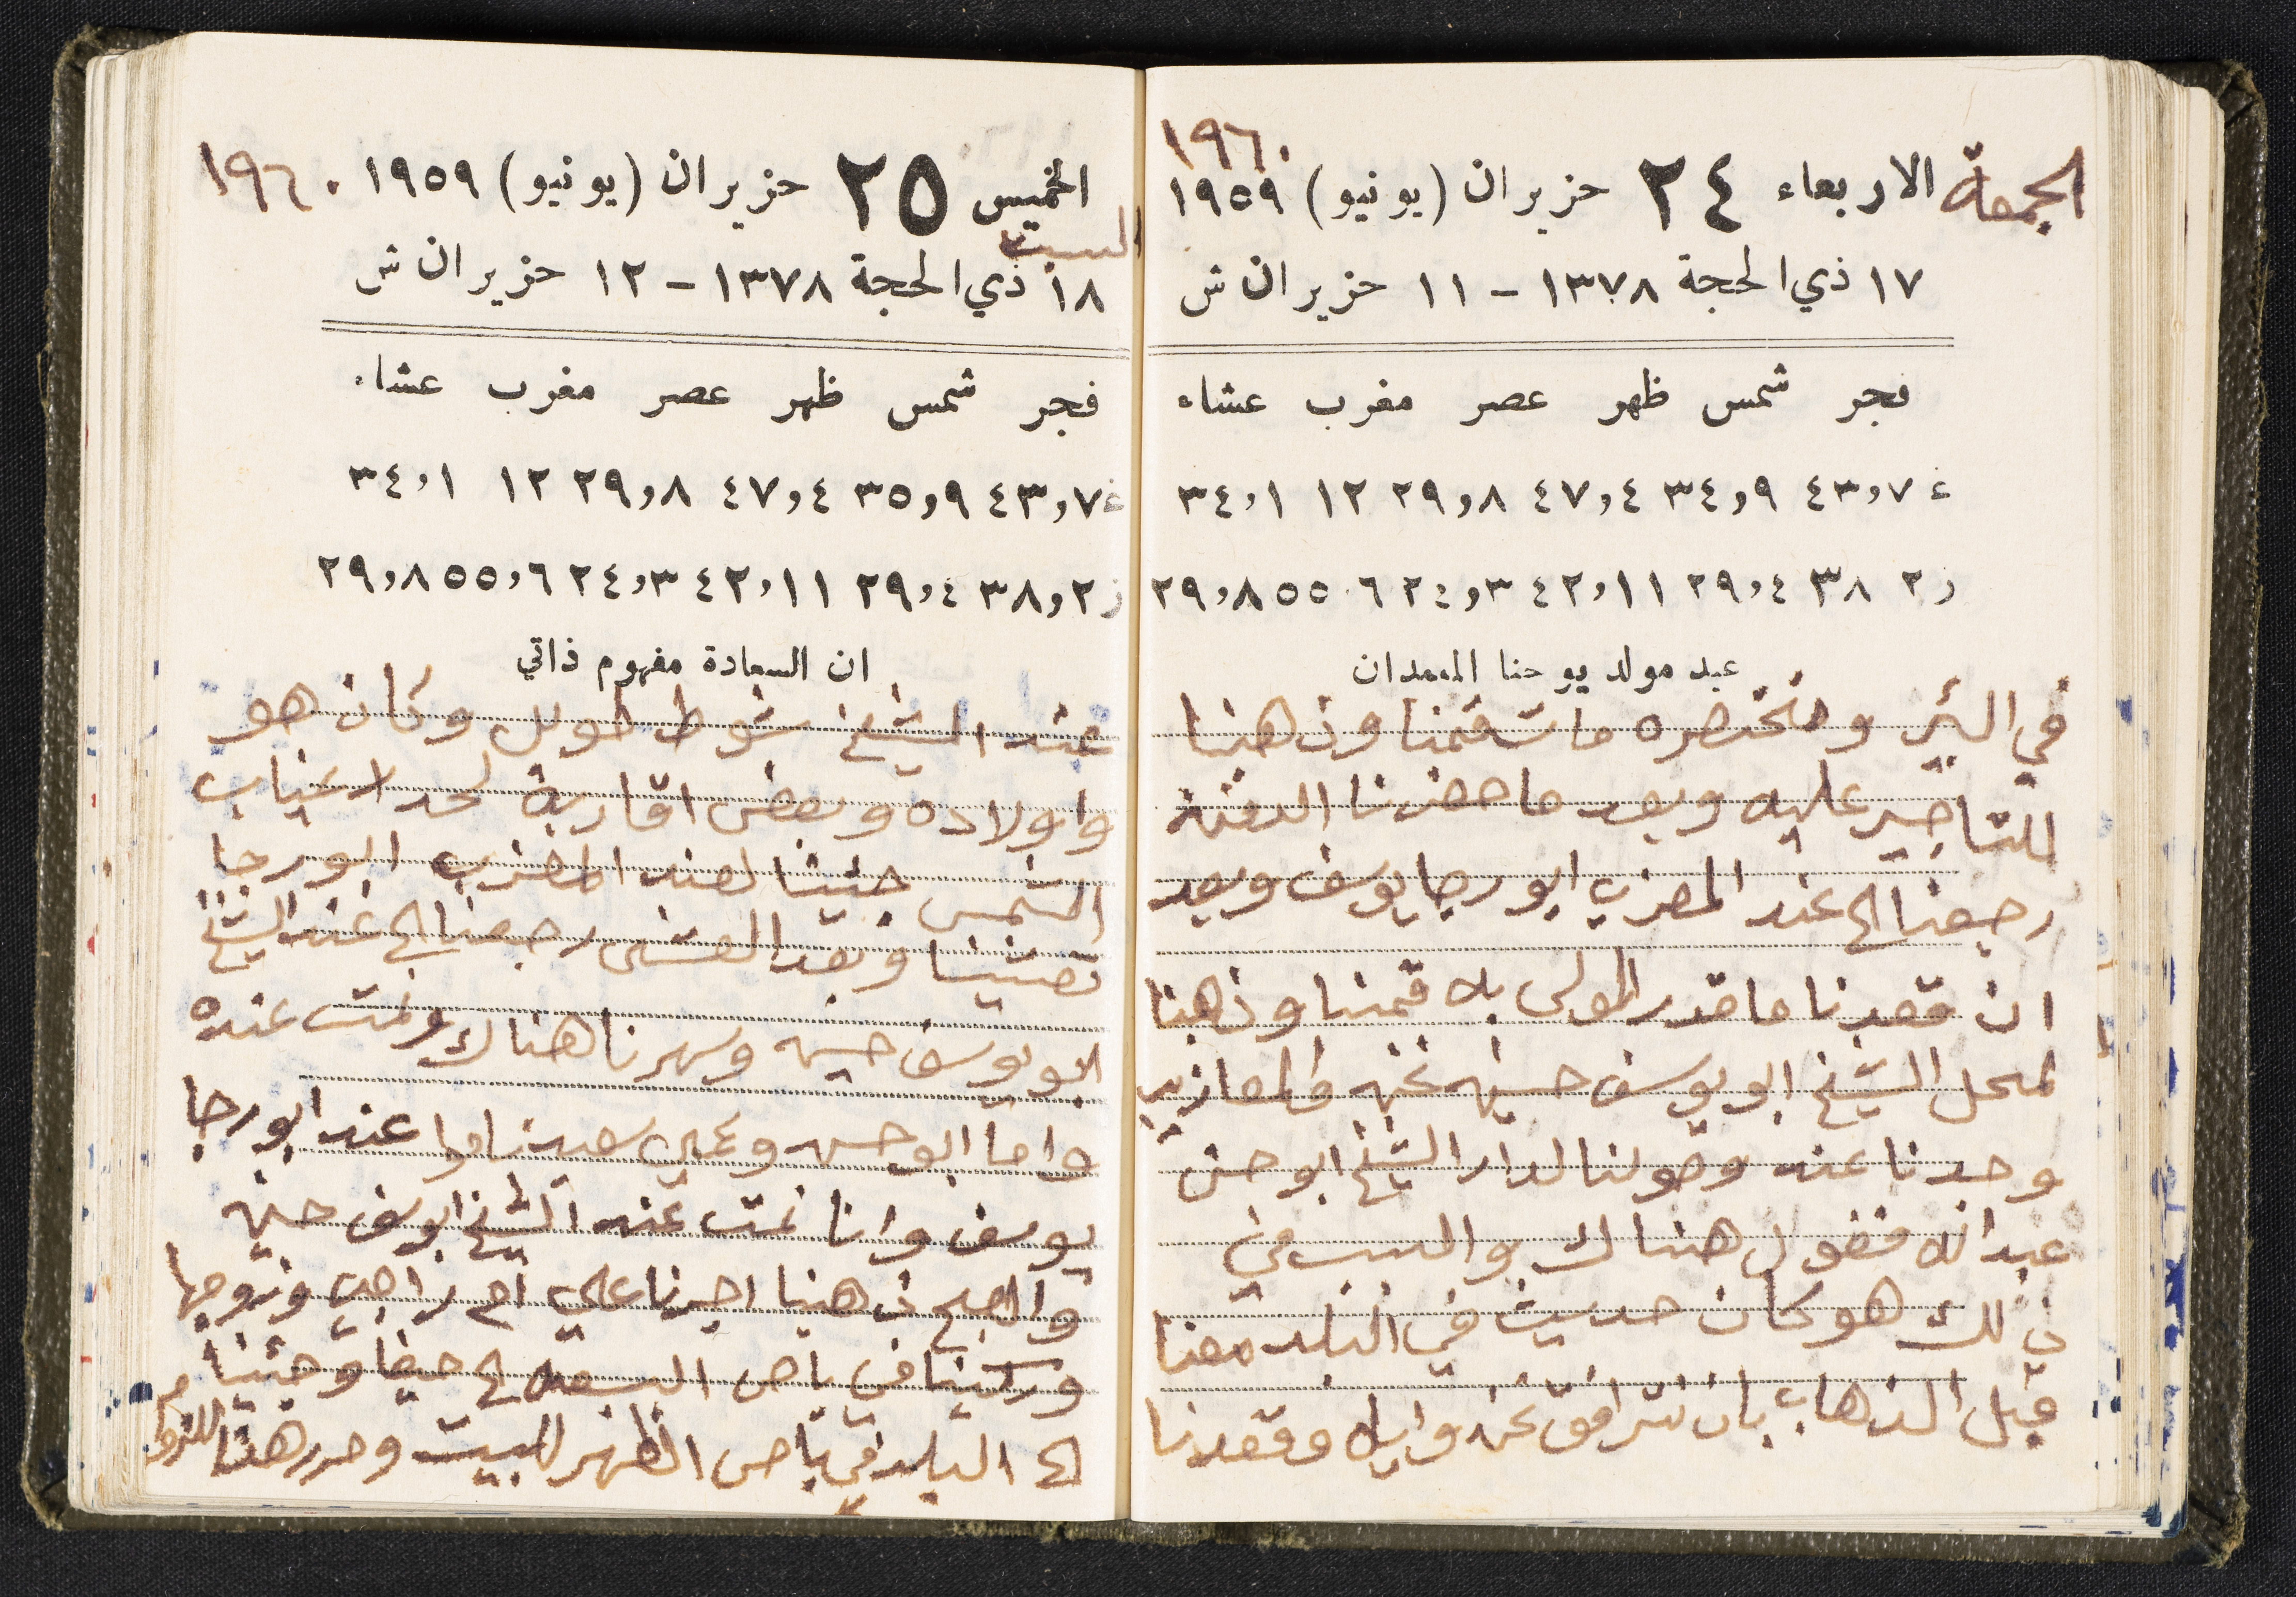 ١٩٦٠
الجمعة الاربعاء ٢٤ حزيران (يونيو) ١٩٥٩
١٧ ذي الحجة ١٣٧٨ - ١١ حزيران ش
فجر شمس ظهر عصر مغرب عشاء
غ ٤٣,٧ ٣٤,٩ ٤٧,٤ ٢٩,٨ ١٢ ٣٤,١
ز ٢ ٣٨ ٢٩,٤ ٤٢,١١ ٢٤,٣ ٥٥ ٦ ٢٩,٨
عيد مولد يوحنا المعمدان
في السير ومختصره ما شفمنا وذهبنا
للتاجير عليه وبعد ما حضرنا الدفنه
رجعنا الى عند المعزي ابو رجا يوسف وبعد
ان قعدنا ما قدر المولى به قمنا وذهبنا
لمحل الشيخ ابو يوسف حسين نحن والمعازيب
وجدنا عند وصولنا لدار الشيخ ابو حسن
عبدالله فضول هناك والسبب في
ذلك هو كان حديث في البلد معنا
قبل الذهاب بان نترافق نحن واياه وقعدنا
الخميس ٢٥ حزيران (يونيو) ١٩٥٩ ١٩٦٠
السبت
١٨ ذي الحجة ١٣٧٨ - ١٢ حزيران ش
فجر شمس ظهر عصر مغرب عشاء
غ ٤٣,٧ ٣٥,٩ ٤٧,٤ ٢٩,٨ ١٢ ٣٤,١
ز ٣٨,٢ ٢٩,٤ ٤٢,١١ ٢٤,٣ ٥٥,٦ ٢٩,٨
ان السعادة مفهوم ذاتي
عند الشيخ شوط طويل وكان هو
واولاده وبعض اقاربه لحد لا غياب
الشمس جيئنا لعند المعزي ابو رجا
تعشينا وبعد العشى رجعنا الى عند الشيخ
ابو يوسف حسين وسهرنا هناك ونمت عنده
واما ابو حسن وعمي سعيد ناموا عند ابو رجا
يوسف وانا نمت عند الشيخ ابوسف حسين
والصبح ذهبنا اجرنا على ام راجي وزوجها
وركبنا في باص السبعه الى حيفا وجئنا
الى البلد في باص الظهر للبيت وحرر هذا للنزوم